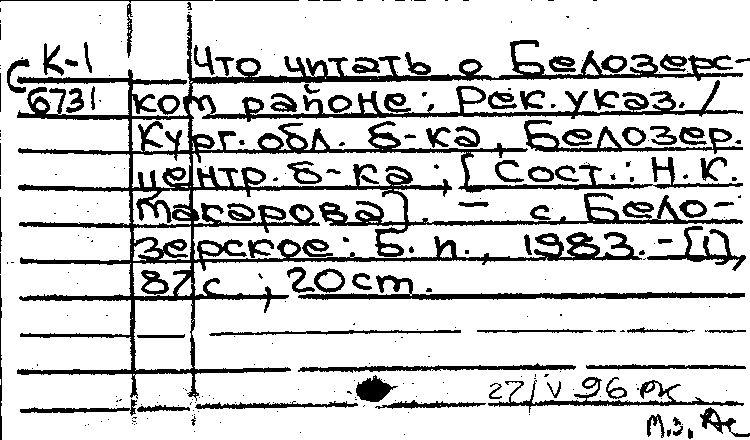 С К-1 Что читать о Белозерс-
6731 ком районе: Рек. указ. /
Кург. обл. б-ка, Белозер.
центр. б-ка; [Сост.: Н. К.
Макарова]. – с. Бело-
зерское: Б. и., 1983. – [1],
87 с ; 20 ст.
27/V 96 РК
М.З.